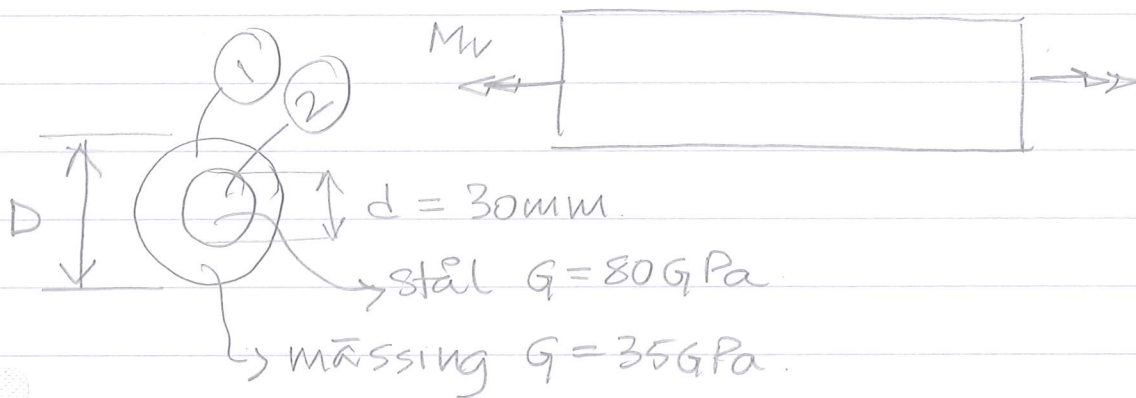 1
Mv
2
D
d = 30mm.
stål G = 80GPa
mässing G = 35GPa.